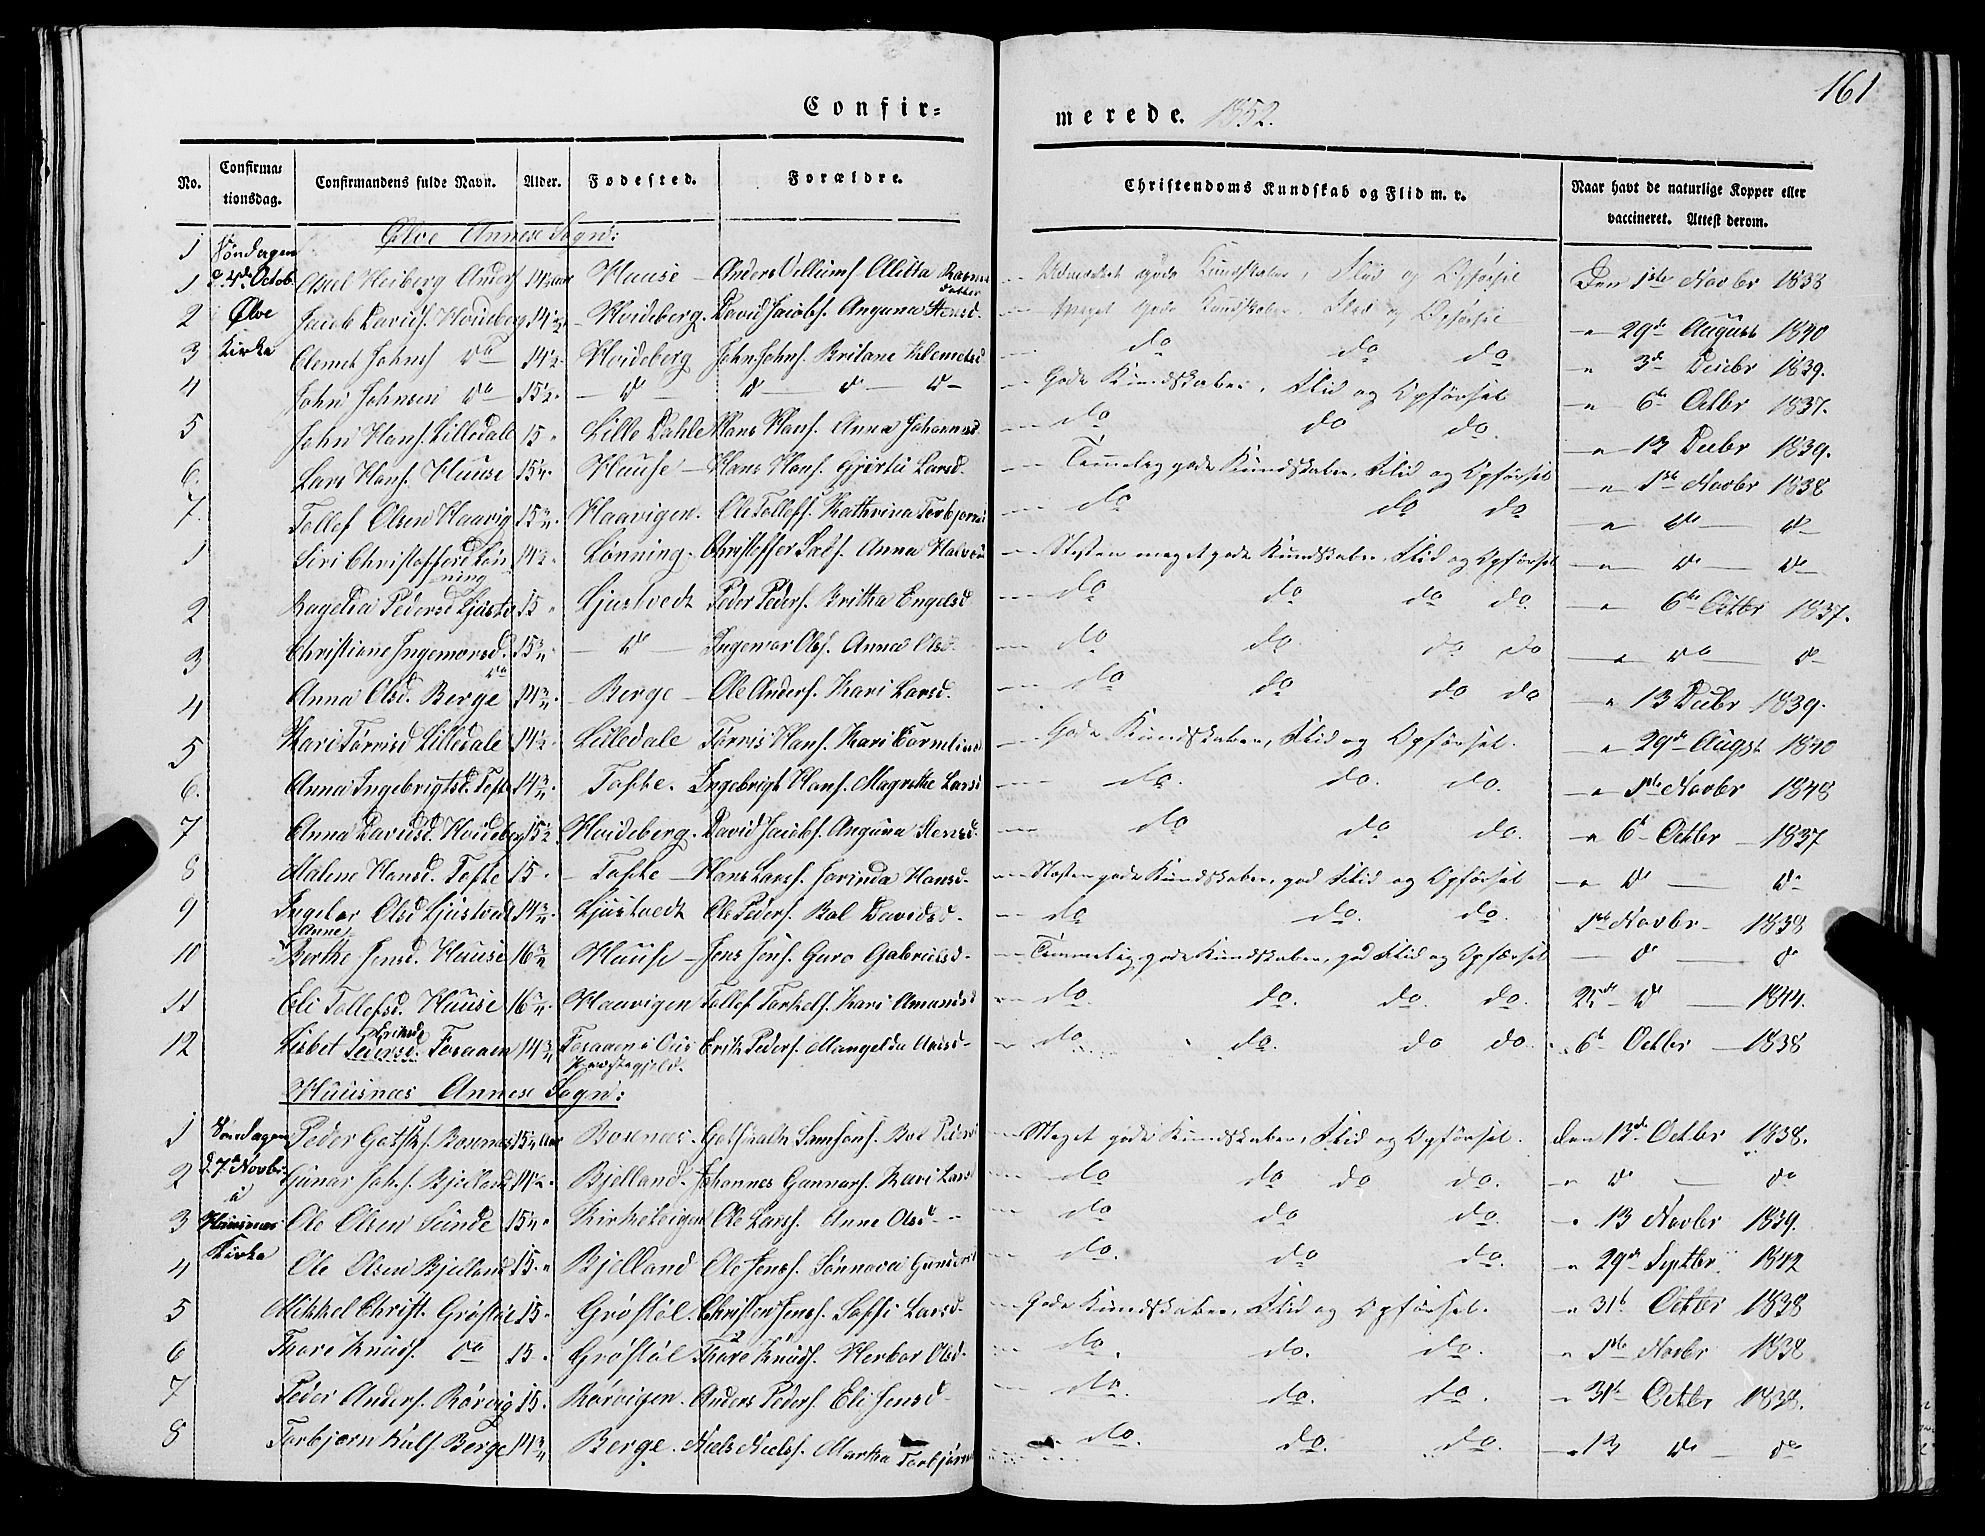 161
Confir=
merede. 1852.
No. Confirmationsdag. Confirmandens fulde Navn. Alder. Fødested. Forældre. Christendoms Kundskab og Flid m. v. Naar havt de naturlige Kopper eller vaccineret. Attest derom.
Ølve Annexe Sogn:
1 Søndagen d. 4de Octob. Axel Heiberg Anders. 14½ Aar Huuse Anders Villums. Alitta Rasmusdatter Udmærket gode Kundskaber, Flid og Opførsel Den 1ste Novbr 1838
2 Ølve Jacob Davids. Hoideberg 14½ Hoideberg. David Jacobs. Anguna Stensd. Meget gode Kundskaber, Flid og Opførsel " 29de August 1840
3 Kirke Clemet Johns. do 14½ Hoideberg John Johns. Britane Klemetsd do do do " 3de Decbr 1839.
4 John Johnsen do 15½ do do do do Gode Kundskaber, Flid og Opførsel " 6te Octbr 1837.
5 John Hans. Lilledale 15 " Lille Dahle Hans Hans. Anna Johannesd. do do do. " 13 Decbr 1839.
6. Lars Hans. Huuse 15¼ Huuse Hans Hans. Gjertru Larsd. Temmelig gode Kundskaber, Flid og Opførsel " 1ste Novbr 1838
7. Tollef Olsen Haavig 15¾ Haavigen. Ole Tollefs. Kathrina Torbjørns do do do " do do
1 Siri Christoffersd Lønning 14½ Lønning. Christoffer Anna Halvors Næsten meget gode Kundskaber, Flid og Opførsel " do do
2 Ragelia Pedersd Ljustv 15 " Ljustvedt Peder Peders. Britha Engelsd do do do do " 6te Octbr 1837.
3 Christiane Ingemorsd. do 15¾ do Ingemor Ols. Anna Olsd. do do do do " do do
4 Anna Olsd. Berge 14¾ Berge Ole Anders. Kari Larsd. do do do do " 13 Decbr 1839.
5 Kari Tørrisd Lilledale 14½ Lilledale Tørris Hans. Kari Corneliusd Gode Kundskaber, Flid og Opførsel. " 29de Augst. 1840
6. Anna Ingebrigtsd. Tofte 14¾ Tofte. Ingebrigt Hans. Magrethe Larsd do. do. do. " 1ste Novbr 1848
7 Anna Davidsd. Hoideberg 15½ Hoideberg. David Jacobs. Anguna Stensd. do do do. " 6te Octbr 1837
8 Malene Hansd. Tofte 15 " Tofte Hans Larss. Jorinda Hansd. Næsten gode Kundskaber, god Flid og Opførsel " do do
9 Ingebor Olsd Ljustvedt 14¾ Ljustvedt Ole Peders. Bol Davidsd. do do. do. 1ste Novbr 1838
10 (Anne) Berthe Jensd. Huuse 16¾ Huuse Jens Jens. Guro Gabrielsd. Temmelig gode Kundskaber, god Flid og Opførsel do do
11 Eli Tollefsd. Huuse 16¼ Haavigen Tollef Torkels. Kari Amundsd do. do. do. do. do 1844.
12 Lisbet Eriksd Pedersd. Foraaen 14¾ Foraaen i Præstegjeld. Erik Peders. do do. do do. " 6te Octbr 1838
Huusnæs Annexe Sogn:
1 Søndagen Peder Gotsk. 15¼ Aar Gotskalk Samsons. Bol Pedersd Meget gode Kundskaber, Flid og Opførsel. Den 13de Octbr 1838.
2 d. 7de Novbr. Gunar Joh. Bjelland 14½ Bjelland. Johannes Gunnars. Kari Larsd do do do do. " do do
3 i Huusnæs Ole Olsen Sunde 15¼ Kirketeigen Ole Larss. Anne Olsd. do do do. " 13 Novbr 1839.
4 Kirke Ole Olsen Bjelland 15 " Bjelland Ole Jenss. Sønneva do. do do. " 29de Septbr. 1842
5 Mikkel Christ. Grøstøl 15 " Grøstøl. Christen Jenss. Larsd. Gode Kundskaber, Flid og Opførsel. " 31te Octbr 1838
6 Thore Knuds. do 15 " Grøstøl Thore Knuds. Herbor Olsd. do. do. do. " 1ste Novbr 1838
7 Peder Anders. Rørvig 15 " Rørvigen. Anders Peders. Eli Jensd. do. do. do. " 31te Octbr 1838.
8 Torbjørn Berge 14¾ Berge. Niels Nielss. Martha Torbjørns do. do. do. " 13 do do